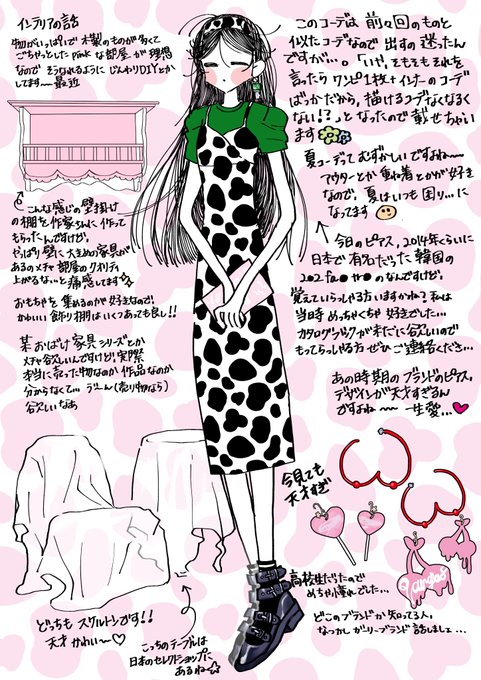 インテリアの話
物がいっぱいで木製のものが多くて
ごちゃっとした pink な部屋が理想
なので そうなれるように じんわりDIYとか
してます〜最近
こんな感じの壁掛け
の棚を作家さんに作って
もらったんですけど、
やっぱり壁に大きめの家具が
あるのメチャ部屋のクオリティ
上がるな…と痛感してます
おもちゃを集めるのが好きなので、
かわいい飾り棚はいくつあっても良し!!
某おばけ家具シリーズとか
メチャ欲しいんですけど、実際
本当に売った物なのか作品なのか
分からなくて…うーん(売り物なら)
欲しいなあ
どっちも スケルトンです!!
天才 かわいい〜♡
こっちのテーブルは
日本のセレクトショップに
あるね☆
このコーデは 前々回のものと
似たコーデなので 出すの迷ったん
ですが…。「いや、そもそもそれを
言ったら ワンピ1枚+インナーのコーデ
ばっかだから、描けるコーデなくなるく
ない!?」となったので 載せちゃい
ます
夏コーデって むずかしいですよね〜
アウターとか 重ね着とかが好き
なので、夏はいつも困り…に
なってます
今日のピアス、2014年くらいに
日本で有名だった 韓国の
のなんですけど、
覚えていらっしゃる方いますかね?私は
当時めっちゃくちゃ好きでした…
カタログブックが未だに欲しいので
もってらっしゃる方 ぜひご連絡くださ…
あの時期のブランドのピアス、
デザインが天才すぎるん
ですよね〜〜一生愛…♥
今見ても
天才すぎ
angas
高校生だったので
めちゃ憧れでした…
どこのブランドか知ってる人、
なつかしガーリーブランド話しましょ…